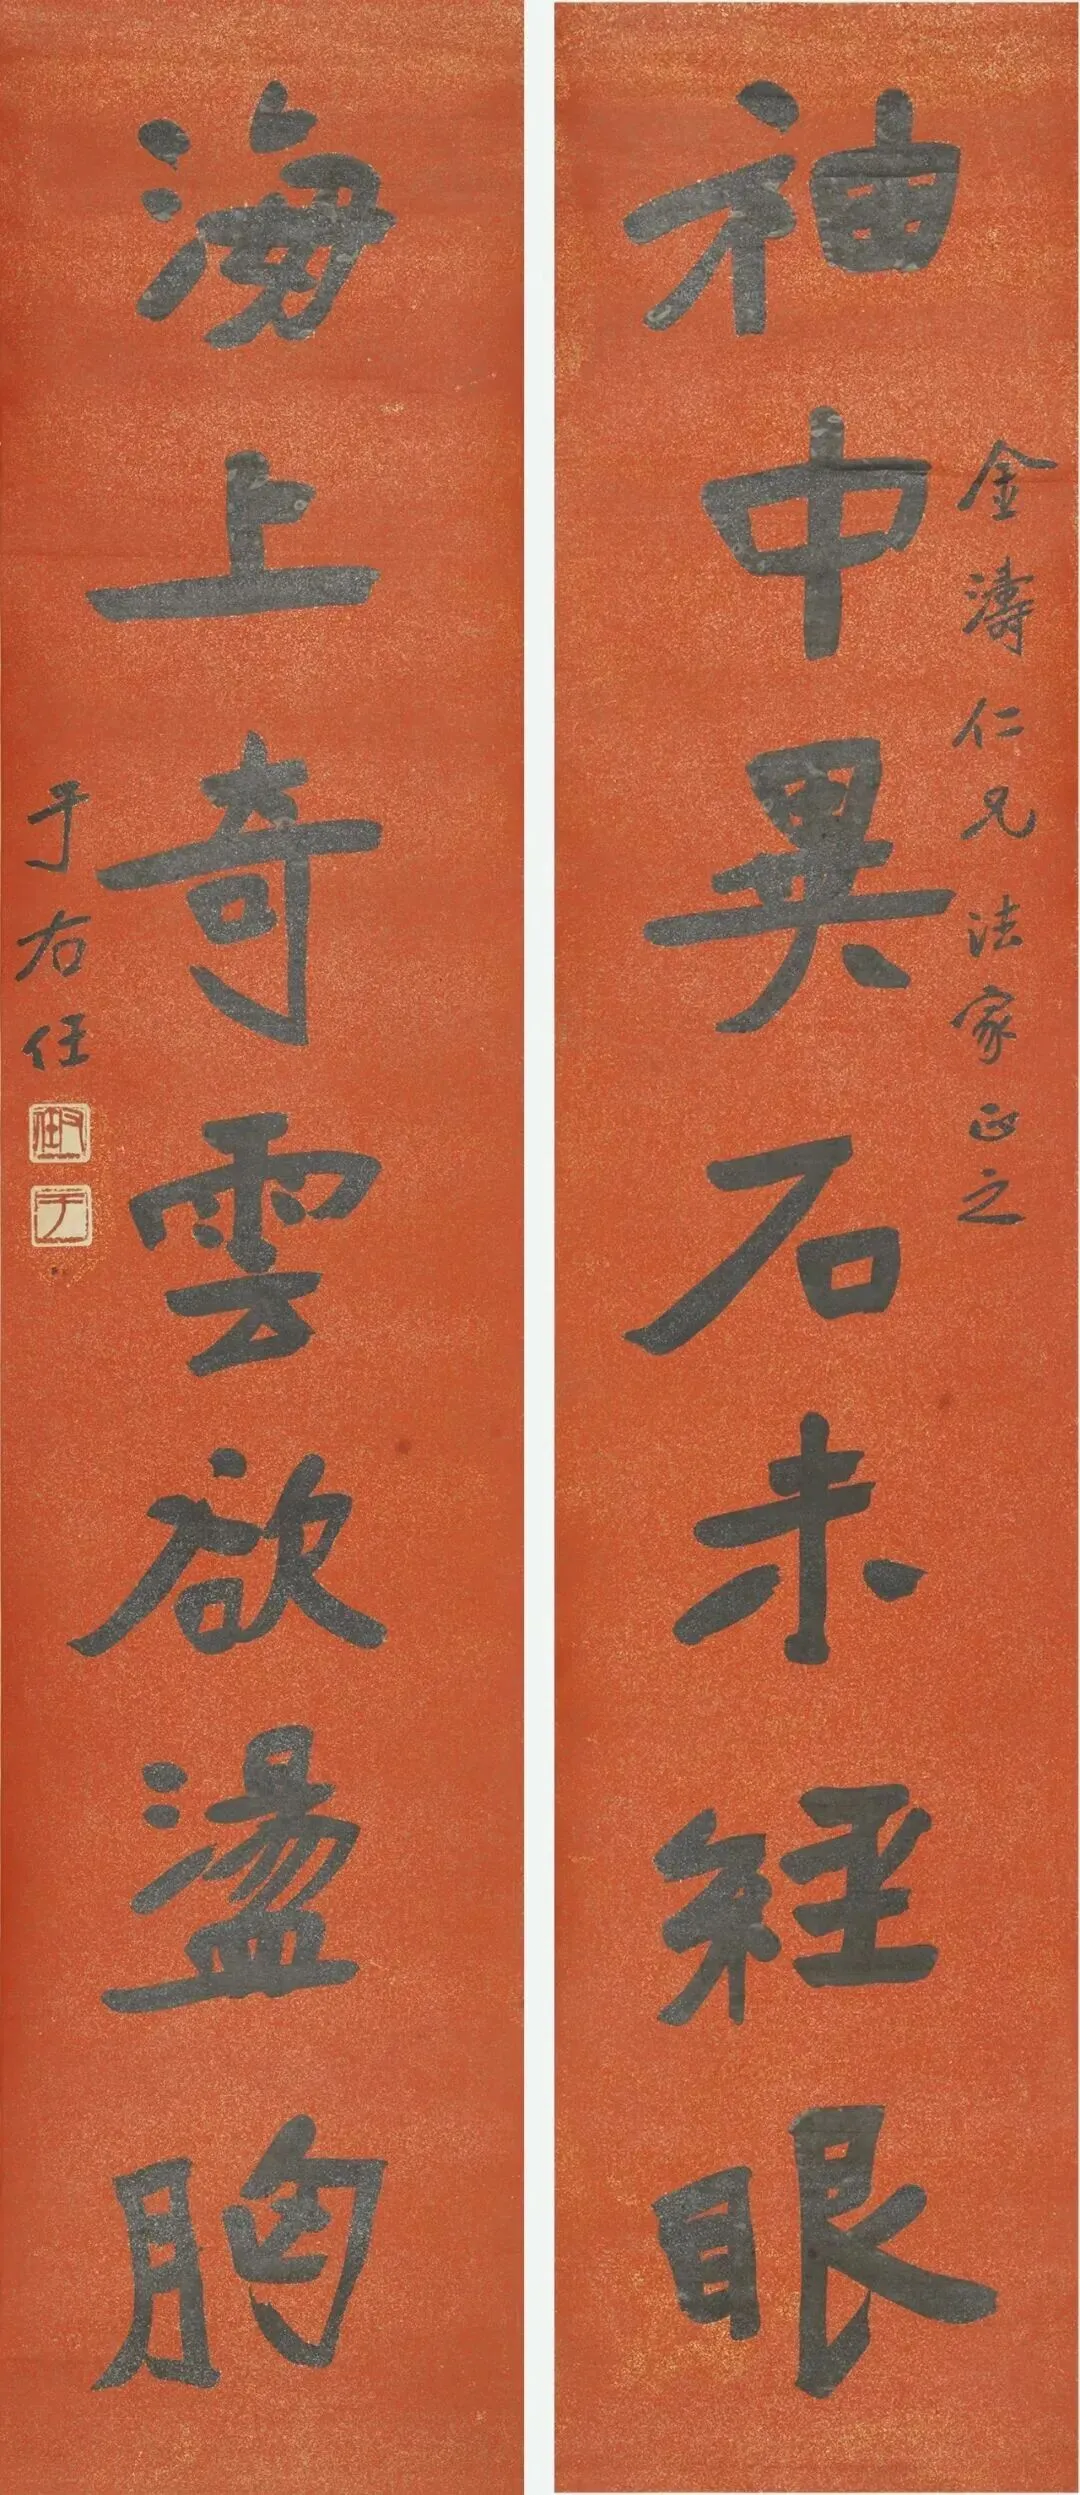 袖中異石未經眼
金濤仁兄法家正之
海上奇雲欲盪胸
于右任
右任
于